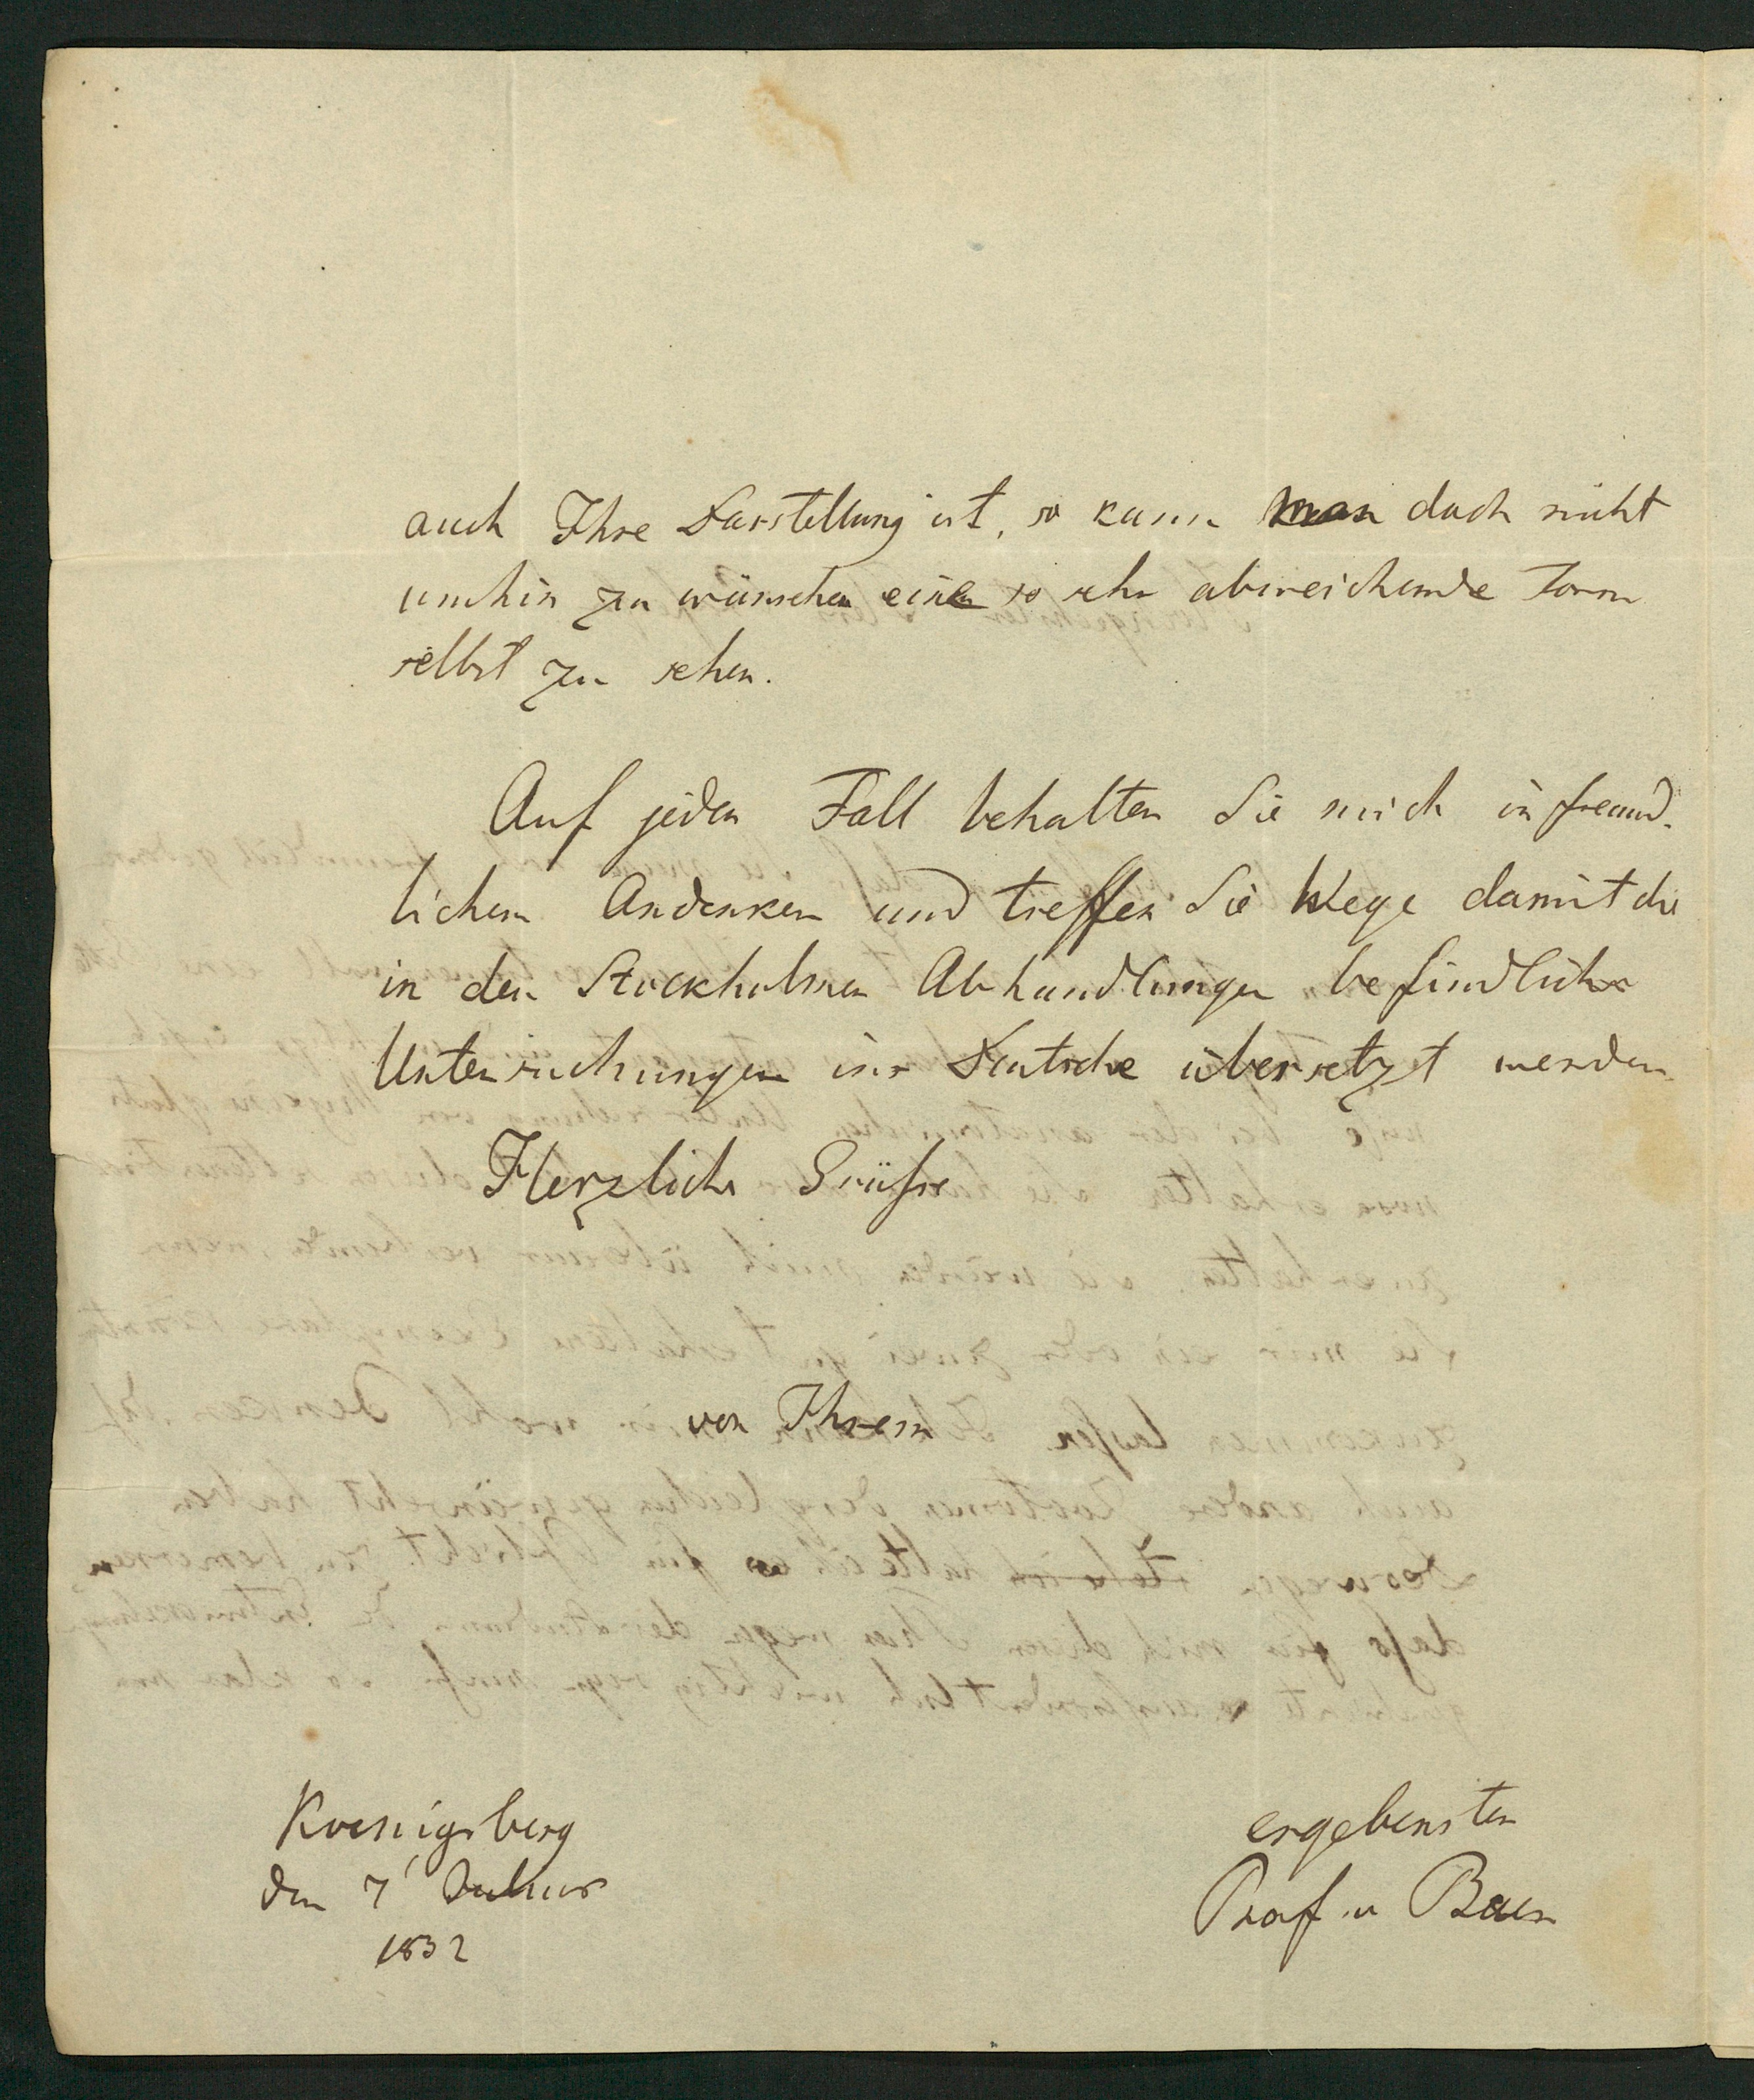 auch Ihre Darstellung ist, so kann man doch nicht
umhin zu wünschen eine so sehr abweichende Form
selbst zu sehen.
Auf jeden Fall behalten Sie mich in freund-
lichem Andenken und treffen Sie Wege damit die
in den Stockholmer Abhandlungen befindliche
Untersuchungen ins Deutsche übersetzt werden
Herzliche Grüße
von Ihrem
ergebensten
Prof. v Baer
Koenigsberg
den 7 Julius
1832